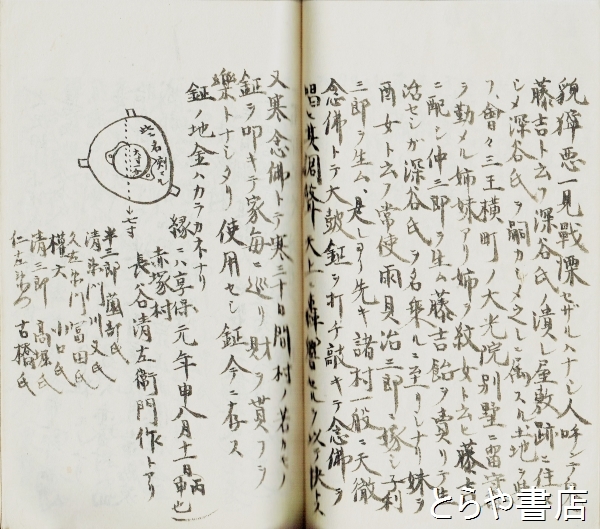 貌獰悪一見戦慄セザルハナシ人呼ンテ
藤吉ト云フ深谷氏ノ潰レ屋敷跡ニ住
シメ深谷氏ヲ嗣カシメ之レニ属スル土地ヲ
フ、會々三王横町ノ大光院別墅ニ留守
ヲ勤メル姉妹アリ姉ヲ紋女ト云ヒ藤吉
ニ配シ仲三郎ヲ生ム藤吉飴ヲ賣リテ生
活セシガ深谷氏ヲ名乗ルニ至リシナリ妹ヲ
酉女ト云フ常使雨貝治三郎ニ嫁シ子利
三郎ヲ生ム、是レヨリ先キ諸村一般ニ天徹
念佛トテ大鼓鉦ヲ打チ敲キテ念佛ヲ
唱ヒ其調聲大ニ
又寒念佛トテ寒三十日間村ノ若キモノ
鉦ヲ叩キテ家毎ニ巡リ財ヲ貰フヲ
樂トナシタリ使用セシ鉦今ニ存ス
鉦ノ地金ハカラカネナリ
縁ニハ享保元年申八月十一日丙申也
赤塚村
長谷清左衛門作トアリ
此名刻アル
七寸
半三郎 薗部氏
清左衛門 川又氏
久左衛門 冨田氏
権六 小口氏
清三郎 高堀氏
仁左衛門 古橋氏
とらや書店